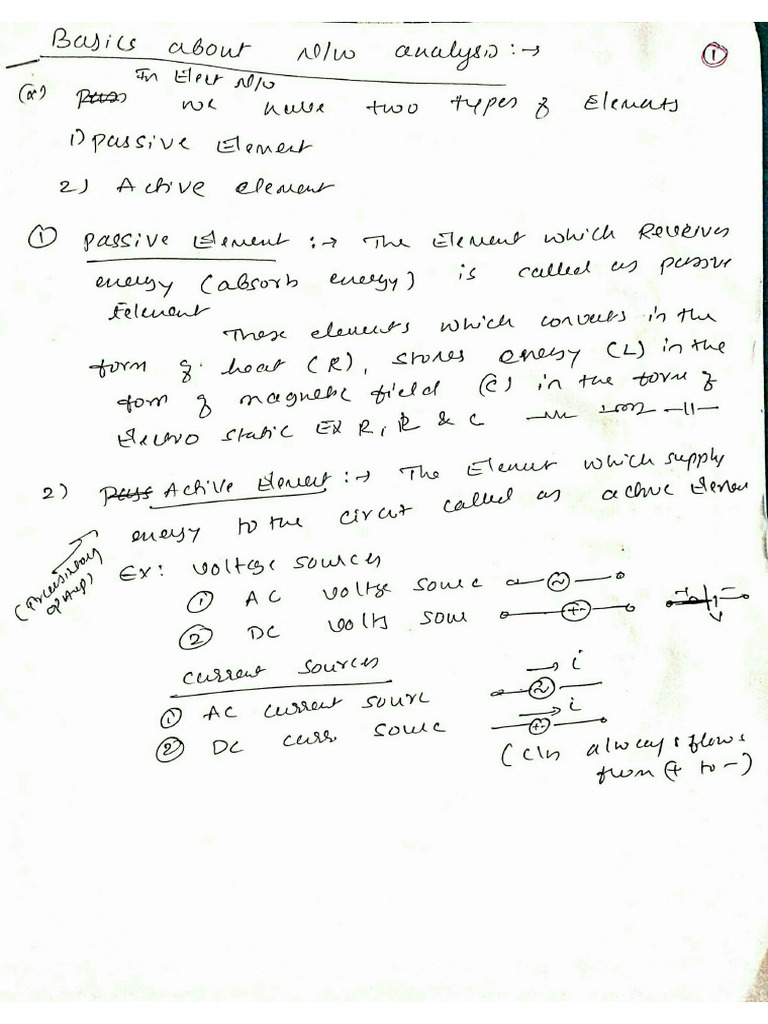 Basics about N/w analysis :→
1
In Elect N/w
(*) we have two types of Elements
1) Passive Element
2) Active element
① Passive Element :→ The Element which Receives
energy (absorb energy) is called as passive
Element
These elements which converts in the
form of heat (R), stores energy (L) in the
form of magnetic field (C) in the form of
Electro static Ex R, L & C
2) Pass Active Element :→ The Element which supply
energy to the circut called as active Elemen
Ex: Voltage sources
① AC voltge source
② DC volts sour
Current Sources
i
① AC current source
i
② DC curr source
(C/n always flows
from + to -)